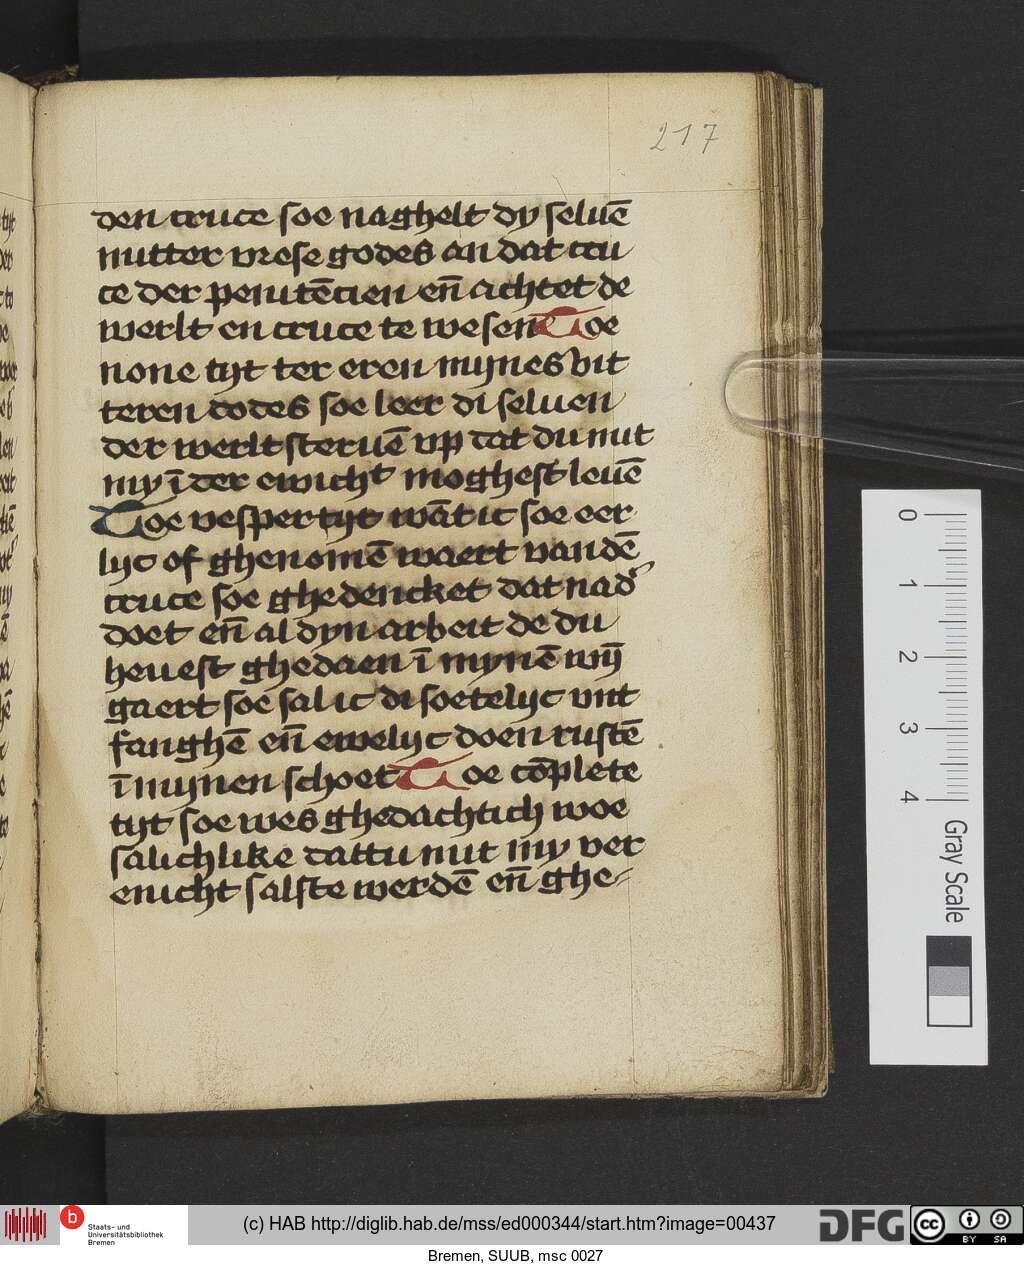 217
den cruce soe naghelt dy seluē
mitter vrese godes an dat cru
ce der penitēcien eñ achtet de
werlt en cruce te wesen Toe
none tijt ter eren mijnes bit
teren dodes soe leer di seluen
der werlt steruē vp dat du mit
my ī der ewicht moghest leuē
Toe vesper tijt wāt ic soe eer
lijc of ghenomē waert vandē
cruce soe ghedencket dat nad'
doet eñ al dyn arbeit de du
heuest ghedaen ī mynē wij̄
gaert soe sal ic di soetelijc vnt
fanghē eñ ewelijc doen rustē
ī mijnen schoet Toe cōplete
tijt soe wes ghedachtich woe
salichlike dattu mit my ver
enicht salste werdē eñ ghe-
0 1 2 3 4
Gray Scale
b Staats- und
Universitätsbibliothek
Bremen
(c) HAB http://diglib.hab.de/mss/ed000344/start.htm?image=00437
DFG
cc BY SA
Bremen, SUUB, msc 0027